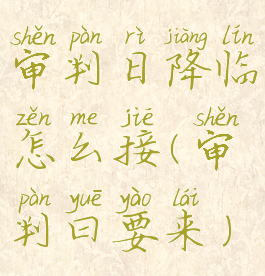 shěn pàn rì jiàng lín
审判日降临
zěn me jiē shěn
怎么接(审
pàn yuē yào lái
判曰要来)